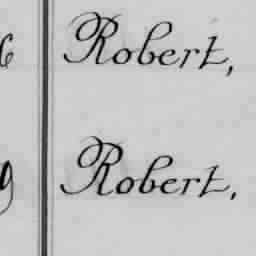 6 Robert,
9 Robert,